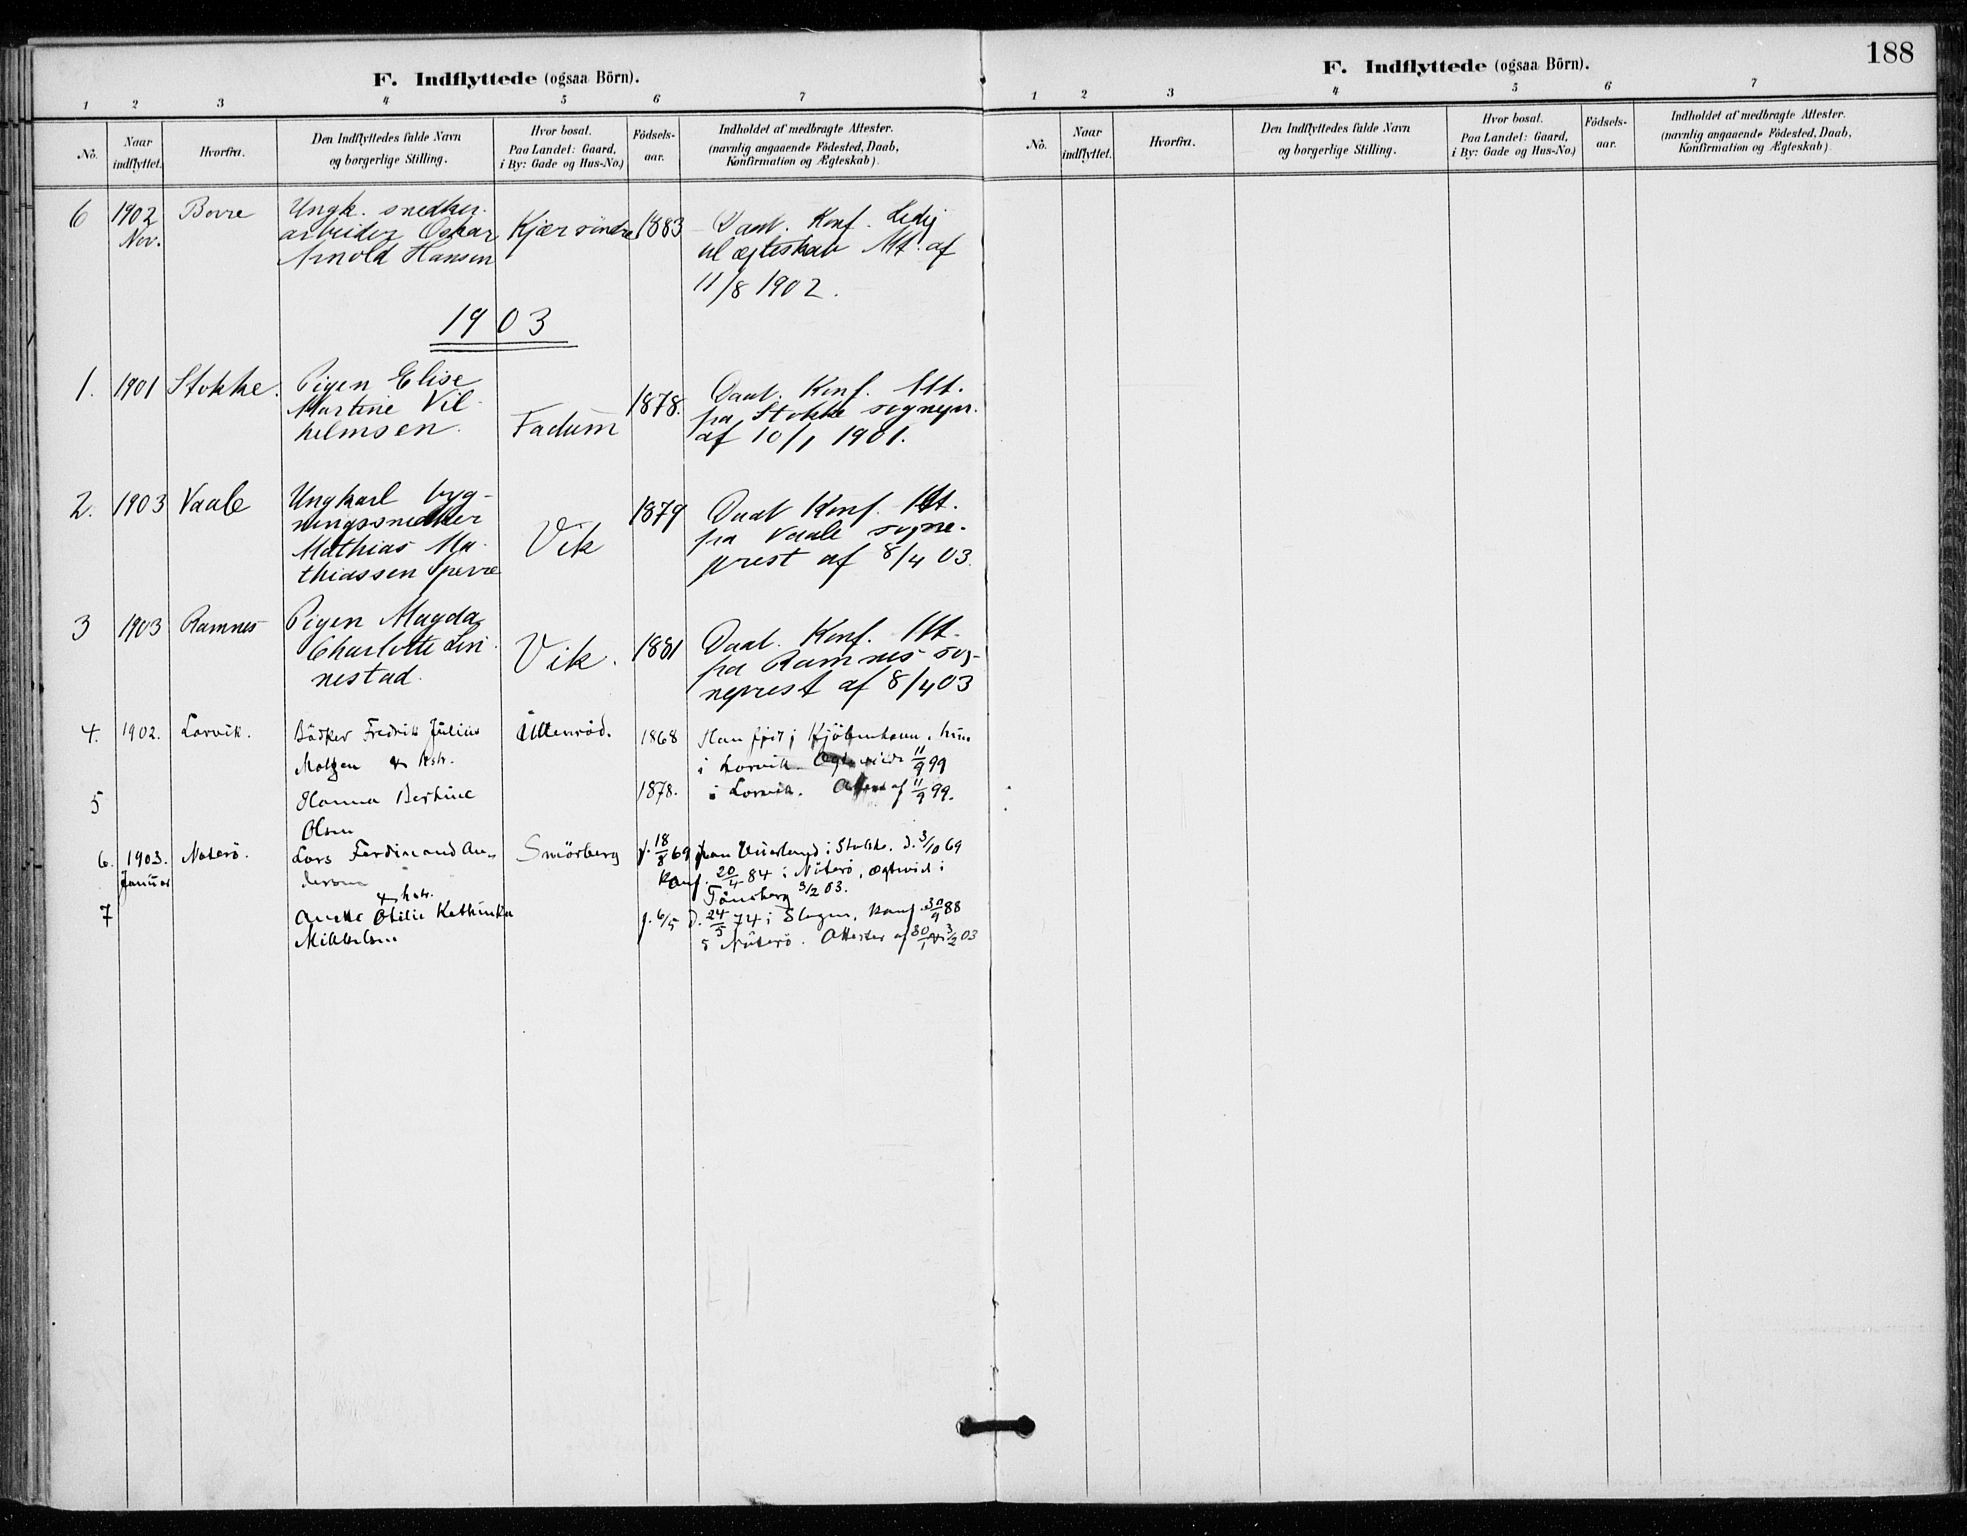 188
F. Indflyttede (ogsaa Börn).
1 2 3 4 5 6 7
No. Naar indflyttet. Hvorfra. Den Indflyttedes fulde Navn og borgerlige Stilling. Hvor bosat. Paa Landet: Gaard, i By: Gade og Hus-No.) Födsels-aar. Indholdet af medbragte Attester. (navnlig angaaende Födested, Daab, Konfirmation og Ægteskab).
6 1902 Borre Ungk. snedker-
Nov. arbeider Oskar Kjær söndre 1883 Daab. Konf. Ledig
Arnold Hansen til ægteskab Att. af
11/8 1902.
1903
1. 1901 Stokke. Pigen Elise 1878. Daab. Konf. Att.
Martine Vil- Fadum fra Stokke sognepr.
helmsen. af 10/1 1901.
2. 1903 Vaale Ungkarl byg- 1879 Daab Konf. Att.
ningssnedker fra Vaale sogne-
Mathias Ma- Vik prest af 8/4 03.
thiassen Sperre
3 1903 Ramnes Pigen Magda
Charlotte Lin- Vik. 1881 Daab. Konf. Att.
nestad. fra Ramnes sog-
neprest af 8/4 03
4. 1902. Larvik. Bödker Fredrik Julius Ullenröd. 1868 Han född i Kjöbenhavn, hun
& hstr. i Larvik. Ægteviede 11/9 99
5 Hanna Bertine 1878. i Larvik. Attest af 11/9 99.
Olsen
6. 1903. Nøterö. Lars Ferdinand An- Smörberg f. 18/8 69 i Stokke. D. 3/10 69
Januar dersen Konf. 20/4 84 i Nöterö, ægtevid i
& hstr. Tönsberg 3/2 03.
7 Anette Otilie Kathinka f. 6/5 D. 24/5 74 i Slagen, Konf. 30/9 88
Mikkelsen i Nöterö. Attester af 30/1 & 3/2 03
F. Indflyttede (ogsaa Börn).
1 2 3 4 5 6 7
No. Naar indflyttet. Hvorfra. Den Indflyttedes fulde Navn og borgerlige Stilling. Hvor bosat. Paa Landet: Gaard, i By: Gade og Hus-No.) Födsels-aar. Indholdet af medbragte Attester. (navnlig angaaende Födested, Daab, Konfirmation og Ægteskab).